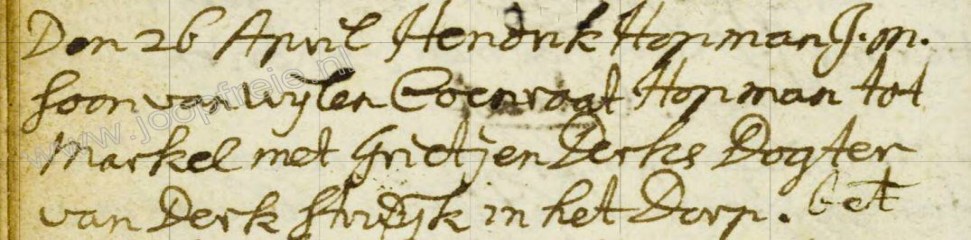 Den 26 April Hendrik Hopman J.m.
soon van wijlen Coenraat Hopman tot
Markel met Grietjen Derks Dogter
van Derk Struijk in het Dorp. bet
www.joopfreie.nl